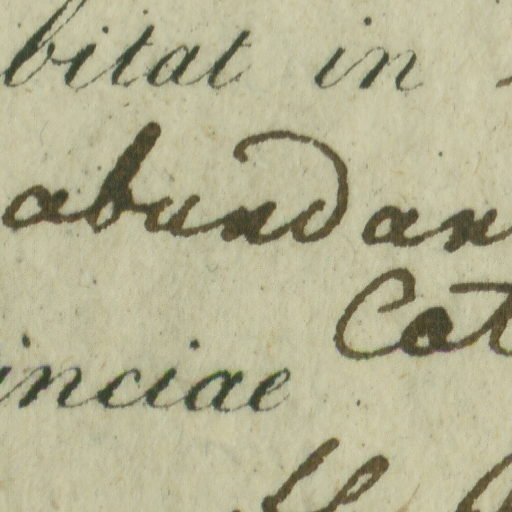 bitat in
abundan
Cat
inciae